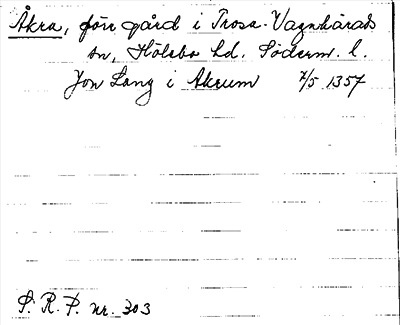 Åkra, förr gård i Trosa-Vagnhärads
sn, Hölebo hd, Söderm. l.
Jon Lang i Akrum 7/5 1357
S. R. P. nr. 303